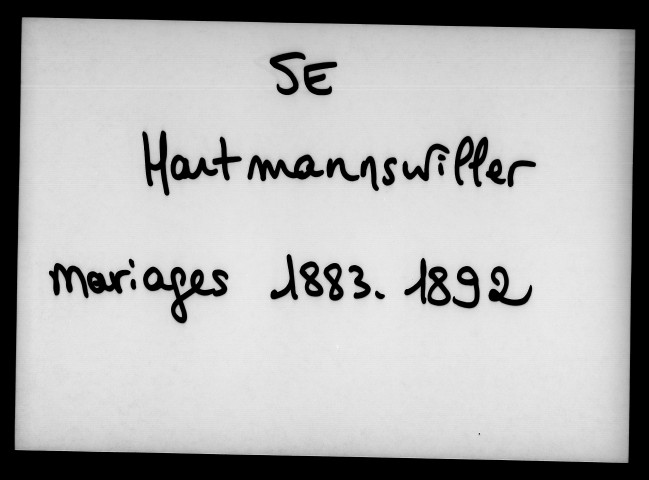 5E
Hartmannswiller
mariages 1883. 1892